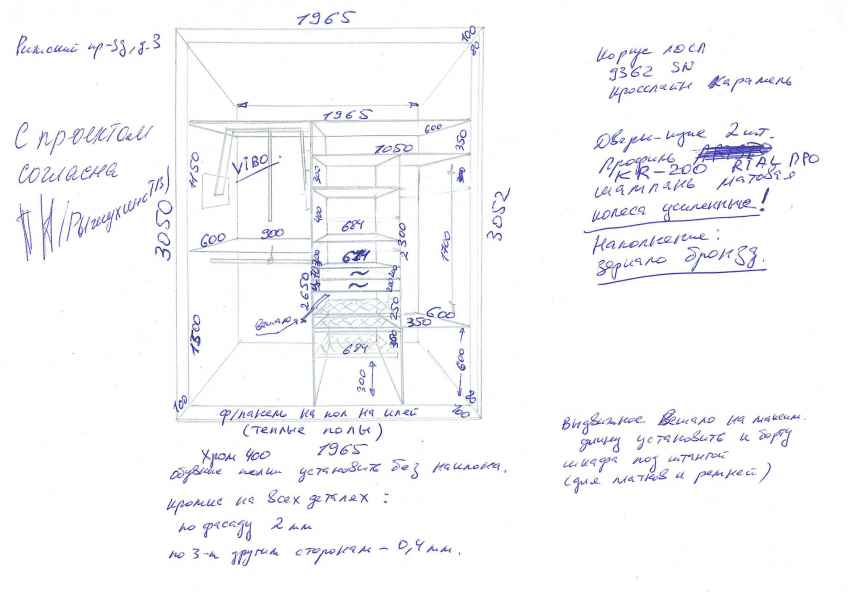 1965
Рижский пр-зд, д.3
100
80
Корпус ЛДСП
9362 SN
Кросслайн Карамель
С проектом
согласна
1965
600
350
1050
Двери-купе 2 шт.
Профиль
KR-200 RIAL ПРО
шампань матовая
колеса усиленные!
Наполнение:
зеркало бронзд.
1150
VIBO
300
400
3050
3052
684
2300
1700
600
900
684
200
2650
вешалка
250
600
350
1500
684
300
300
600
100
100
80
ф/панель на пол на клей
(теплые полы)
Хром 400
1965
обувные полки установить без наклона.
кромка на всех деталях:
по фасаду 2 мм
по 3-м другим сторонам - 0,4 мм.
Выдвижное вешало на максим.
длину установить к борту
шкафа под штангой
(для платков и ремней)